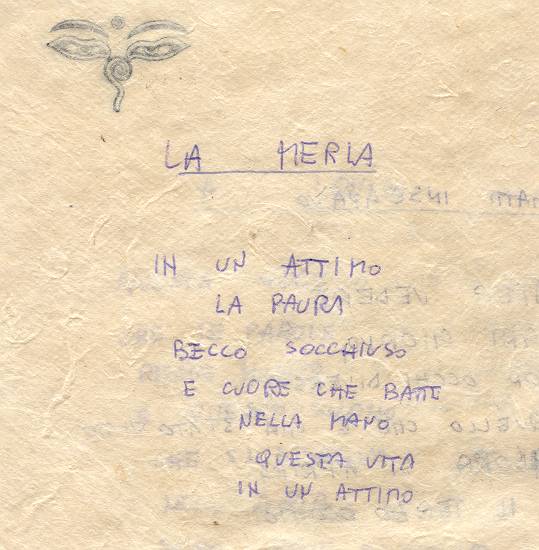 LA MERLA
IN UN ATTIMO
LA PAURA
BECCO SOCCHIUSO
E CUORE CHE BATTE
NELLA MANO
QUESTA VITA
IN UN ATTIMO